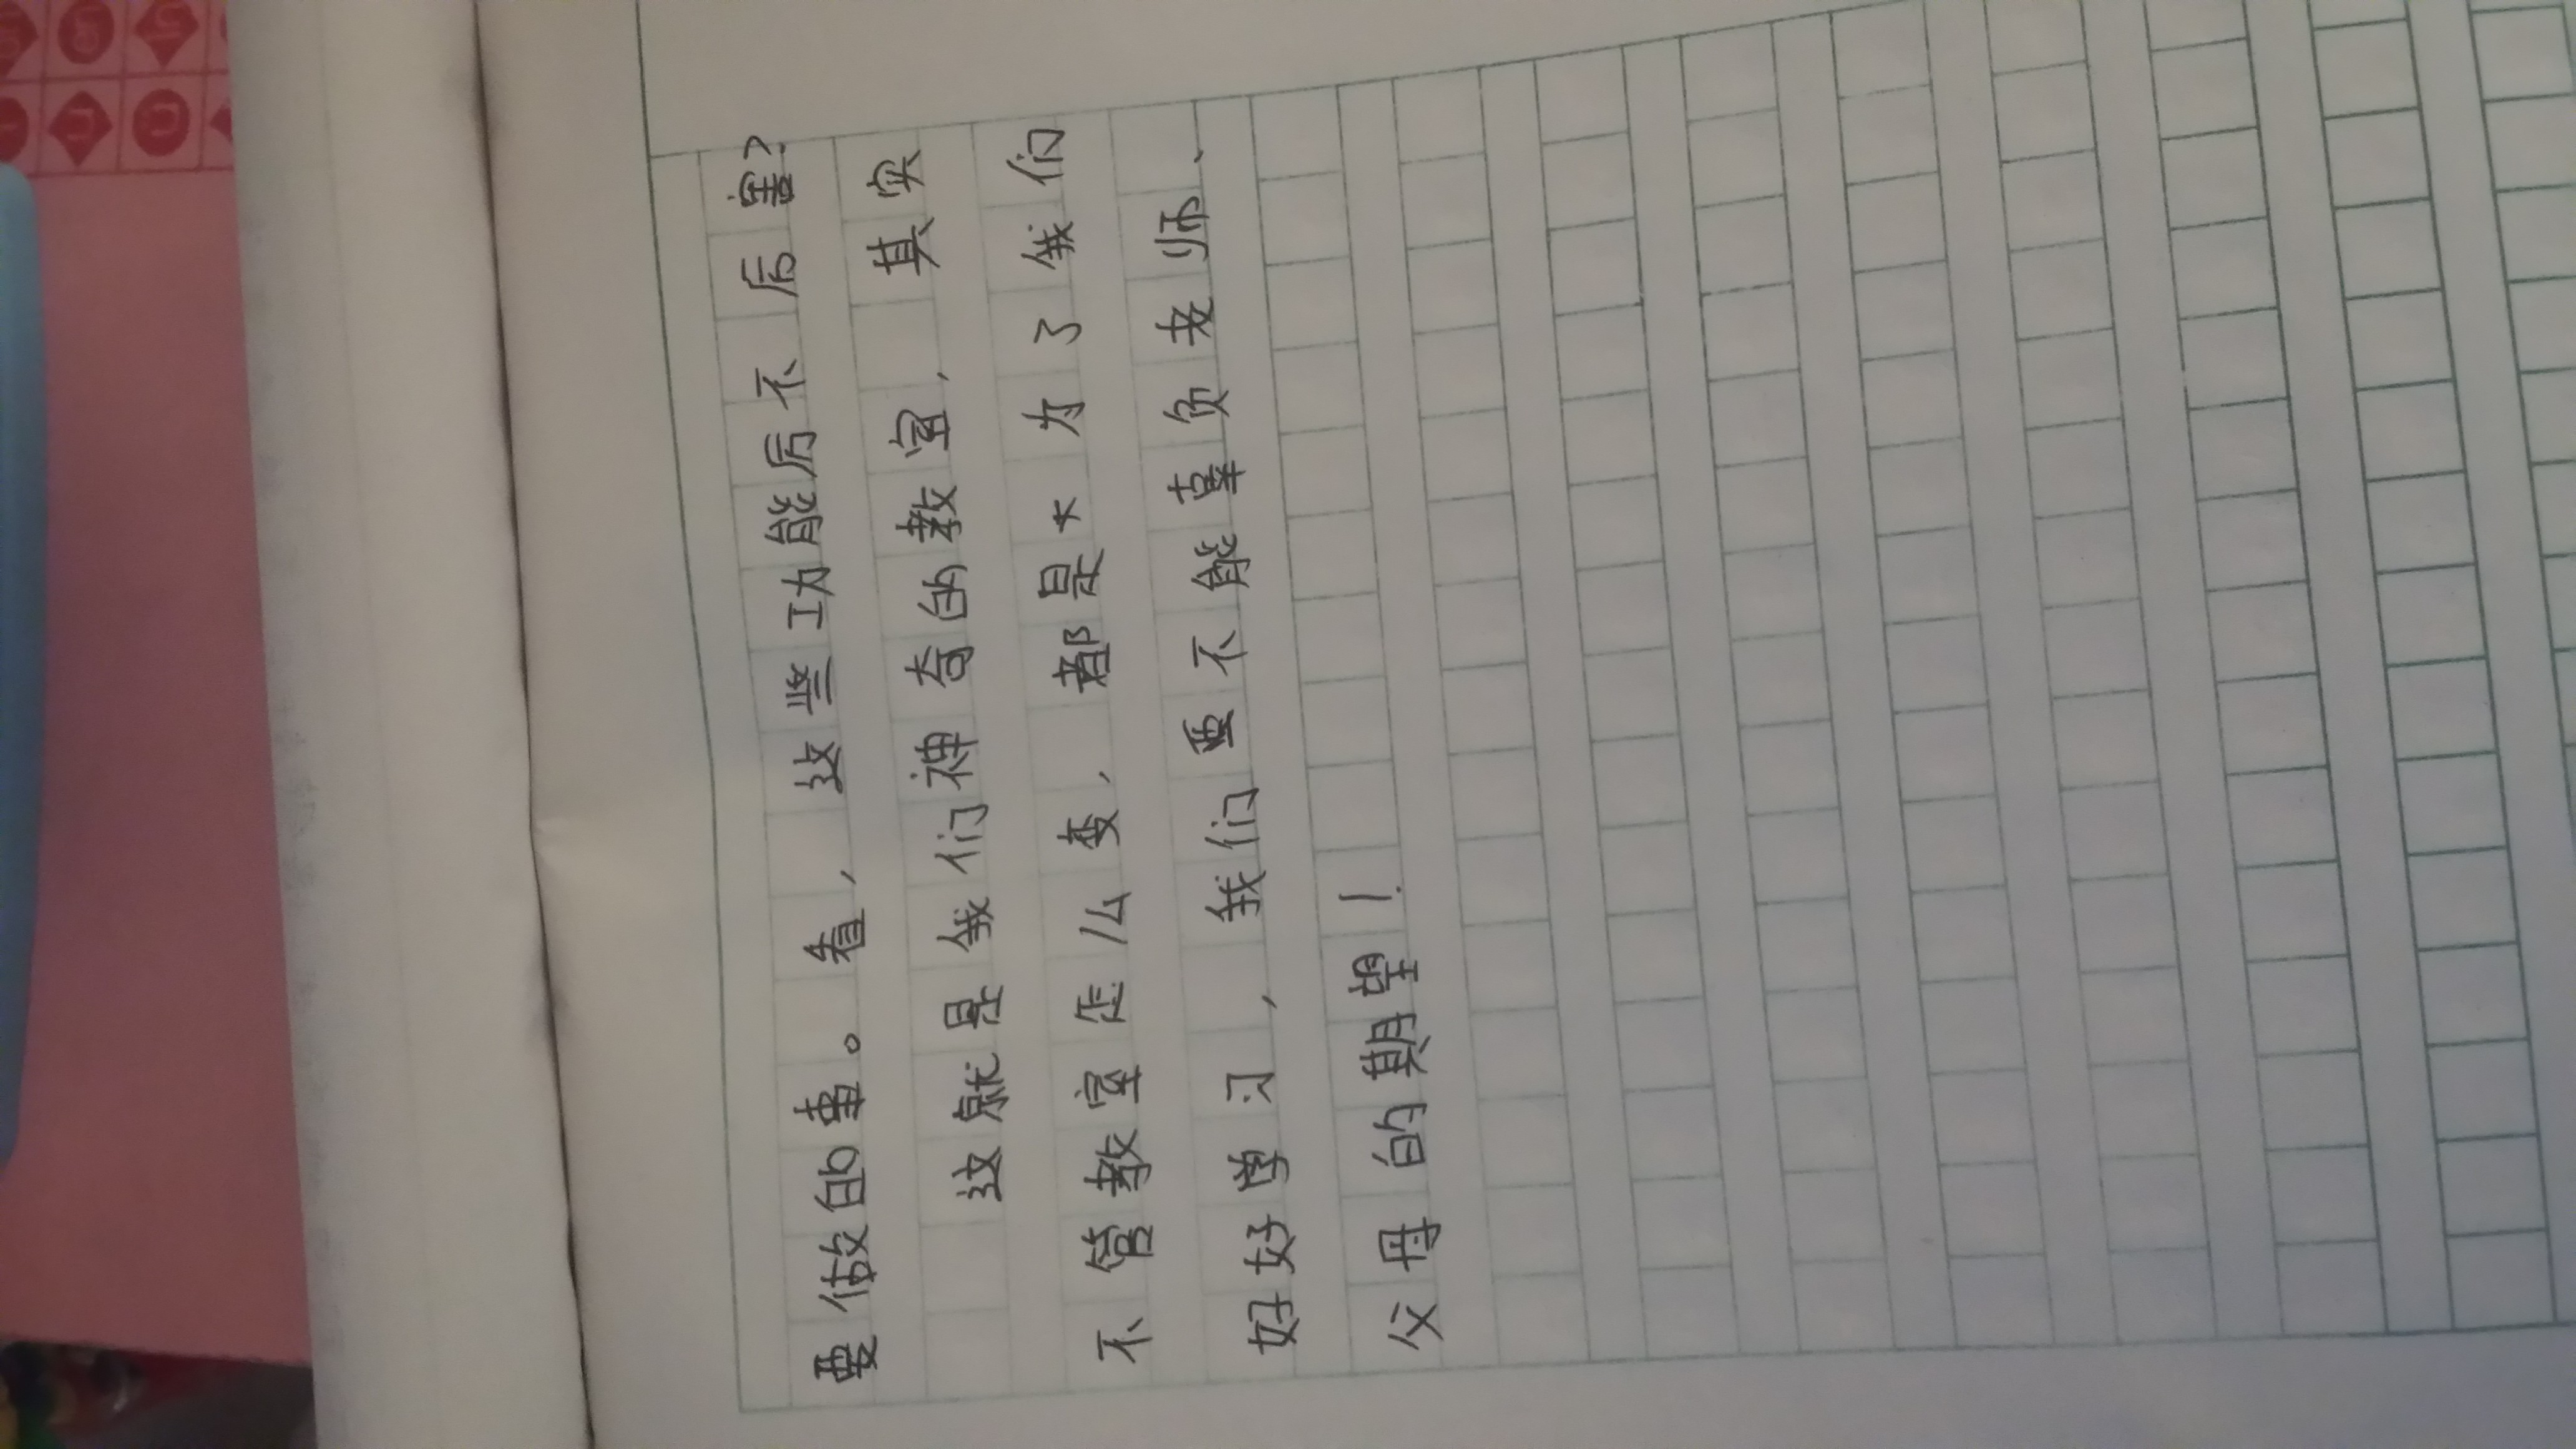 要做的事。看，这些功能后不后害？
这就是我们神奇的教室，其实
不管教室怎么变，都是大为了我们
好好学习，我们要不能辜负老师、
父母的期望！